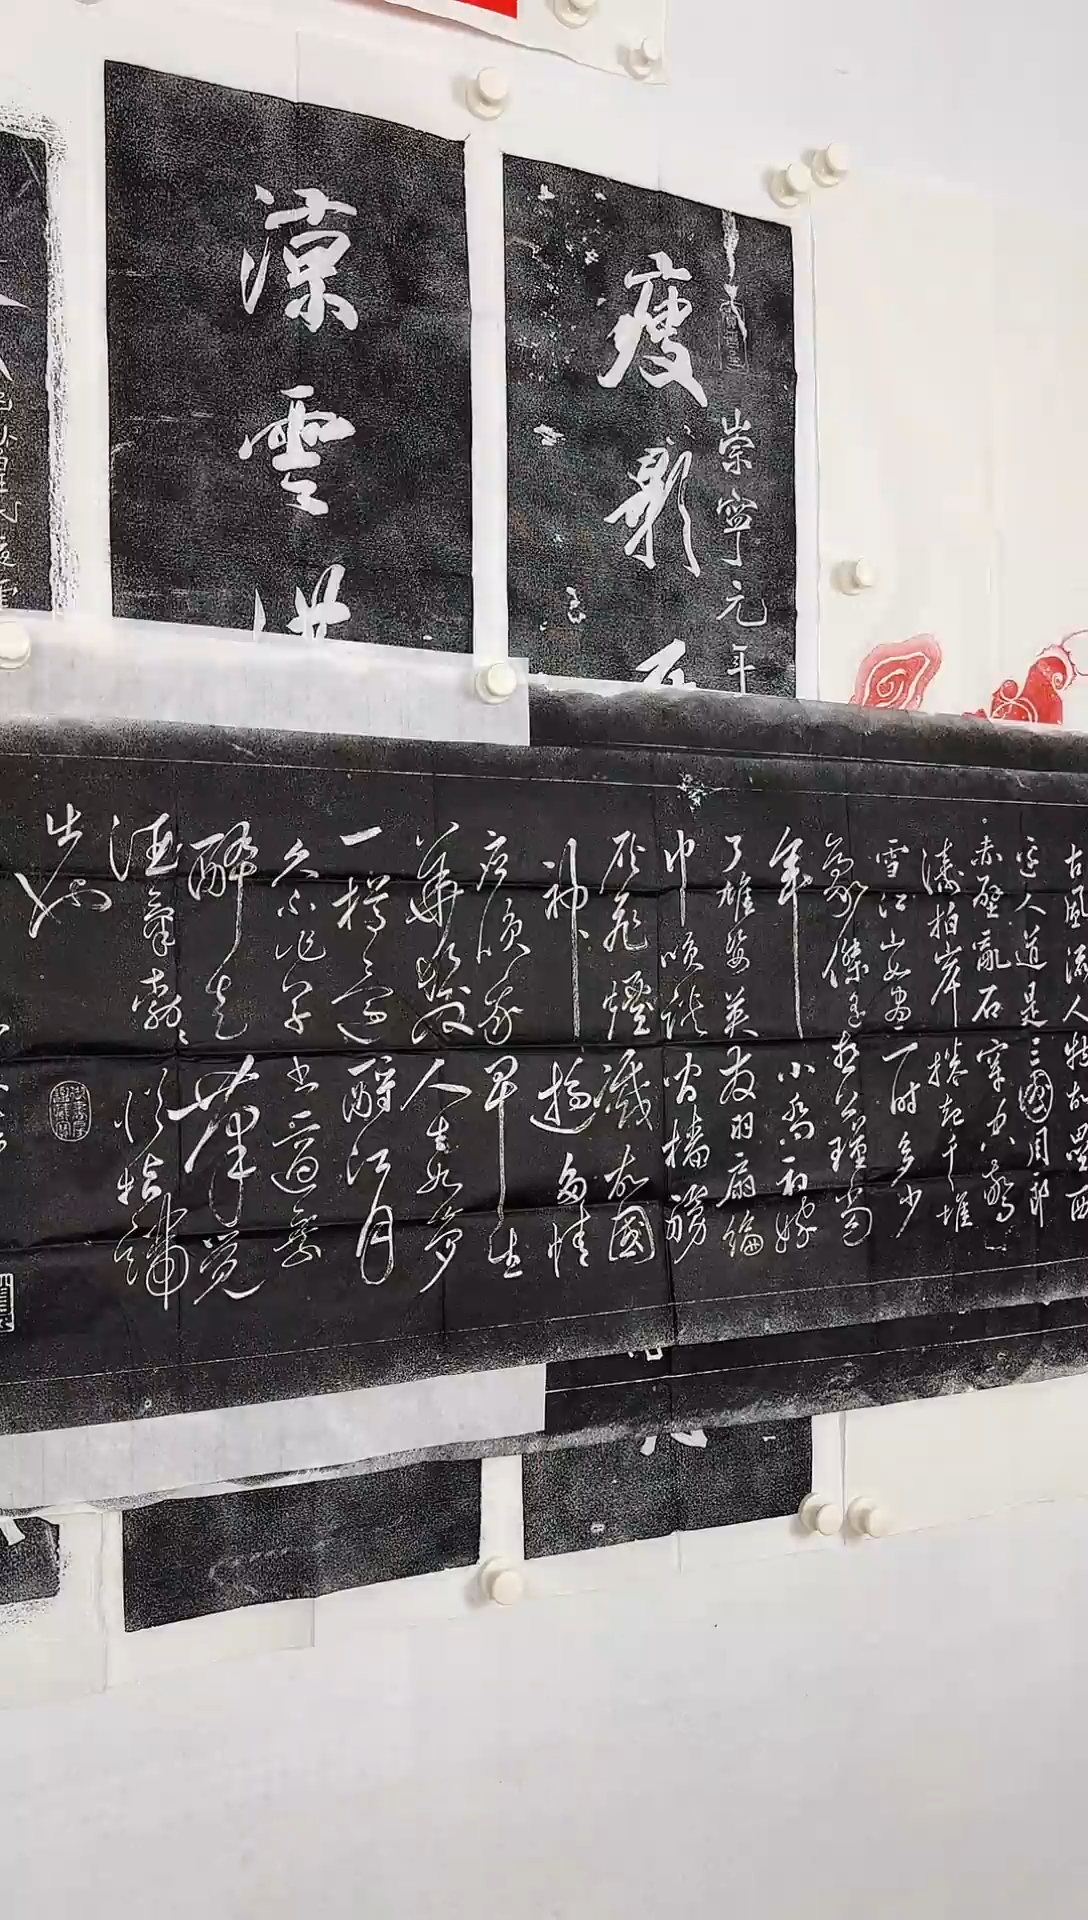 崇寧元年
瘦影
涼雲洪
古風流人物故壘西
邊人道是三國周郎
赤壁亂石穿空驚
濤拍岸捲起千堆
雪江山如畫一時多少
豪傑遙想公瑾當
年小喬初嫁
了雄姿英發羽扇綸
巾咲談間檣艣
灰飛煙滅故國
神遊多情
應咲我早生
華髮人生如夢
一樽還酹江月
久不作草書適乘
醉走筆覺
酒氣勃勃似指端
出也